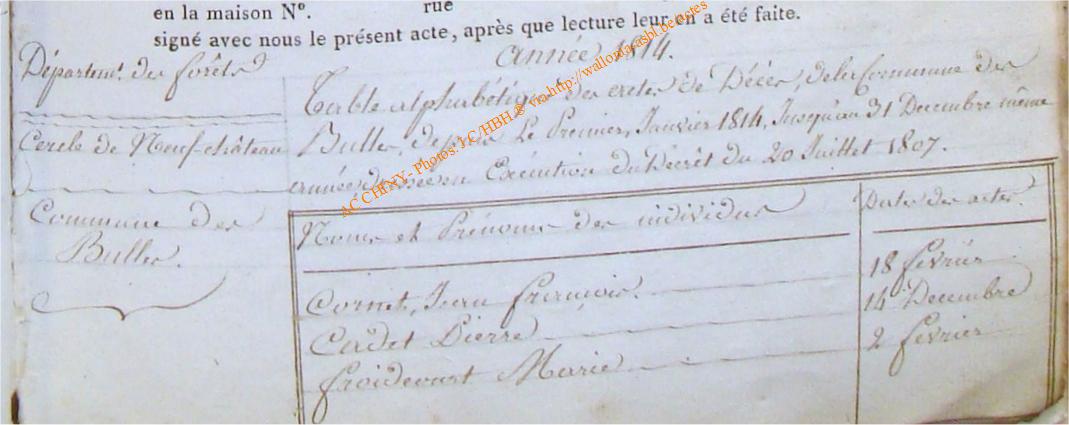 en la maison Nº. rue
signé avec nous le présent acte, après que lecture leur en a été faite.
Départemt. des forêts
année 1814.
Table alphabétique des actes de Décès, de la Commune des
Cercle de Neufchâteau
Bulles, depuis Le Premier Janvier 1814, Jusqu'au 31 Decembre même
année, en Exécution du Décrêt du 20 Juillet 1807.
Commune des
Bulles.
Noms et Prénoms des individus
Dates des actes.
Cornet, Jean françois. 18 fevrier
Cadet Pierre 14 Decembre
froidecourt Marie 2 fevrier
AC CHENY - Photos: LC/HBH © via http://wallonia.asbl.be/actes